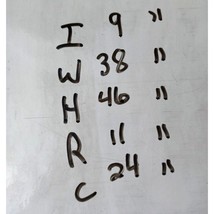 I 9 "
W 38 "
H 46 "
R 11 "
C 24 "